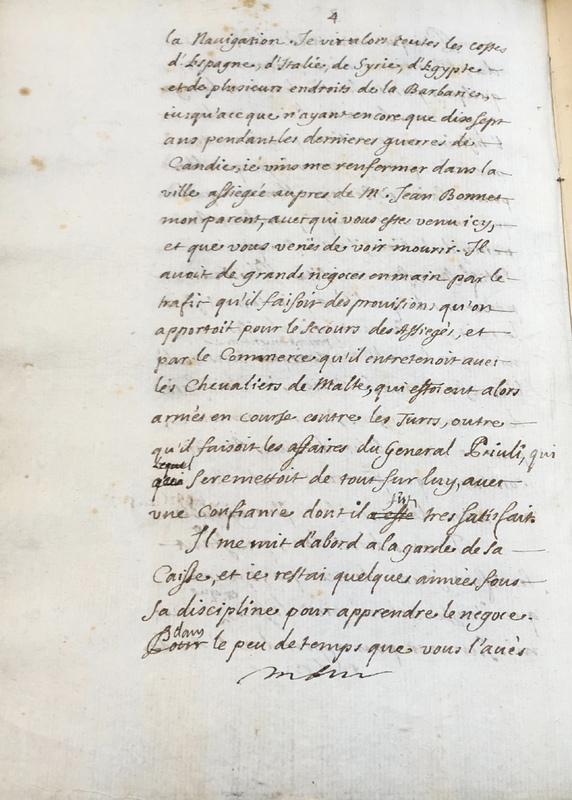 4
la Navigation. Je vis alors toutes les costes
d'Espagne, d'Italie, de Syrie, d'Egypte
et de plusieurs endroits de la Barbarie,
iusqu'ace que n'ayant encore que dixsept
ans pendant les dernieres guerres de
Candie, ie vins me renfermer dans la
ville assiegée aupres de Mr. Jean Bonnet
mon parent, avec qui vous estes venu icy,
et que vous venés de voir mourir. Il
avoit de grands negoces en main par le
trafic qu'il faisoit des provisions qu'on
apportoit pour le secours des Assiegés, et
par le Commerce qu'il entretenoit avec
les Chevaliers de Malte, qui estoient alors
armés en course contre les Turcs, outre
qu'il faisoit les affaires du General Priuli, qui
lequel
se remettoit de tout sur luy, avec
une confiance dont il a esté tres satisfait.
Il me mit d'abord a la garde de sa
Caisse, et ie restai quelques années sous
sa discipline pour apprendre le negoce.
dans
Pour le peu de temps que vous l'avés